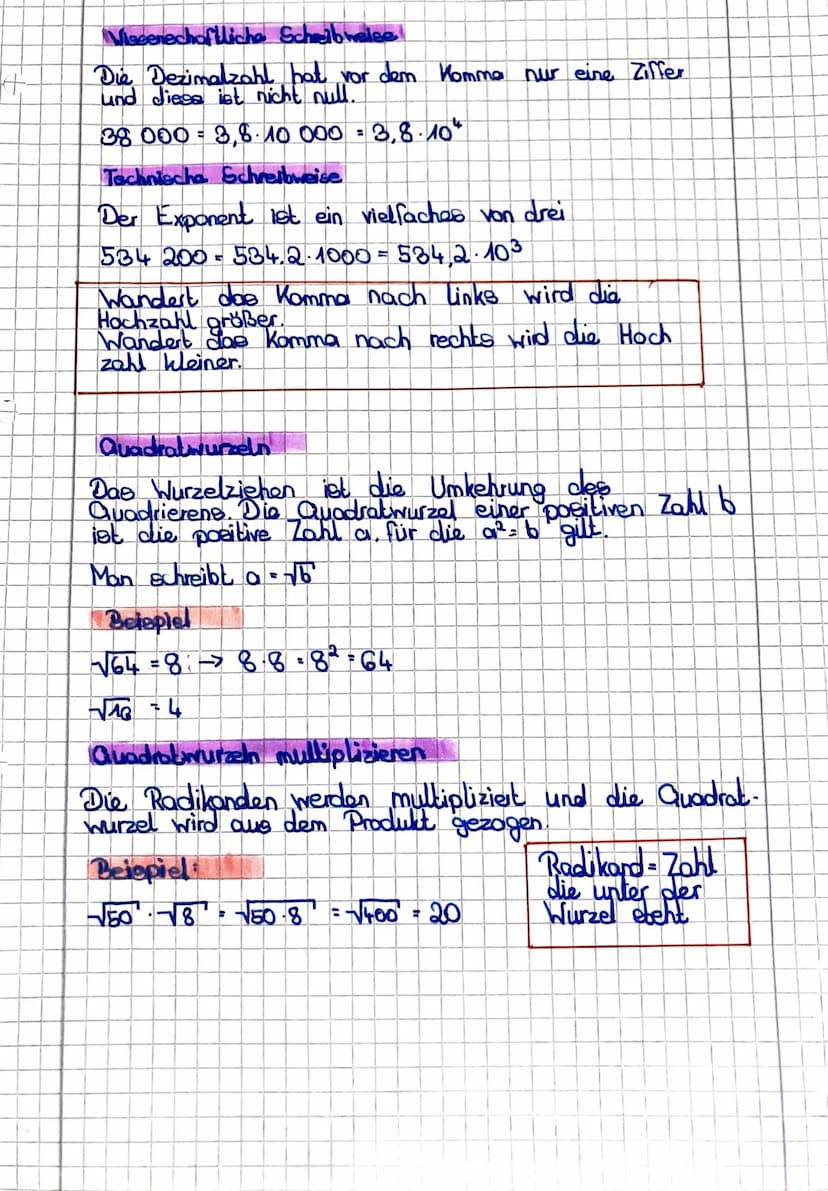 Wissenschaftliche Scheibweise
Die Dezimalzahl hat vor dem Komma nur eine Ziffer
und diese ist nicht null.
38 000 = 3,8 · 10 000 = 3,8 · 10⁴
Technische Schreibweise
Der Exponent ist ein vielfaches von drei
534 200 = 534,2 · 1000 = 534,2 · 10³
Wandert das Komma nach links wird die
Hochzahl größer.
Wandert das Komma nach rechts wird die Hoch
zahl kleiner.
Quadratwurzeln
Das Wurzelziehen ist die Umkehrung des
Quadrierens. Die Quadratwurzel einer positiven Zahl b
ist die positive Zahl a, für die a² = b gilt.
Man schreibt a = √b
Beispiel
√64 = 8; → 8 · 8 = 8² = 64
√16 = 4
Quadratwurzeln multiplizieren
Die Radikanden werden multipliziert und die Quadrat-
wurzel wird aus dem Produkt gezogen.
Beispiel:
√50 · √8 = √50 · 8 = √400 = 20
Radikand = Zahl
die unter der
Wurzel steht